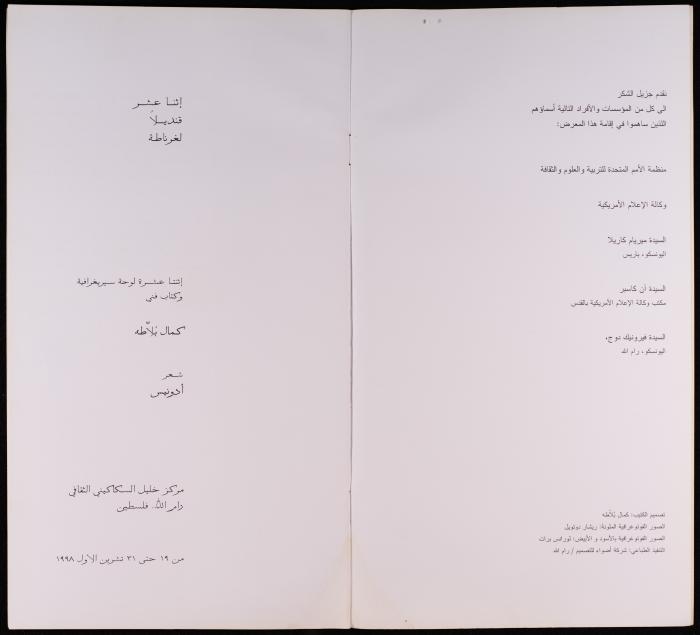 نقدم جزيل الشكر
الى كل من المؤسسات والأفراد التالية أسماؤهم
اللذين ساهموا في إقامة هذا المعرض:
منظمة الأمم المتحدة للتربية والعلوم والثقافة
وكالة الإعلام الأمريكية
السيدة ميريام كاريلا
اليونسكو، باريس
السيدة آن كاسبر
مكتب وكالة الإعلام الأمريكية بالقدس
السيدة فيرونيك دوج،
اليونسكو، رام الله
تصميم الكتيب: كمال بُلاّطه
الصور الفوتوغرافية الملونة: ريشار دوتويل
الصور الفوتوغرافية بالأسود و الأبيض: لورانس برات
التنفيذ الطباعي: شركة أضواء للتصميم / رام الله
إثنا عشر
قنديلاً
لغرناطة
إثنتا عشرة لوحة سيريغرافية
وكتاب فني
كمال بُلاّطه
شعر
أدونيس
مركز خليل السكاكيني الثقافي
رام الله، فلسطين
من ١٩ حتى ٣١ تشرين الاول ١٩٩٨